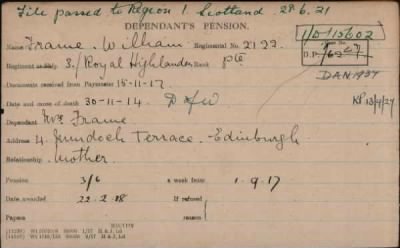 File passed to Region 1. Scotland 28.6.21
DEPENDANT'S PENSION.
1/D/15602
Name Frame. William Regimental No. 2122.
D.P. /6227
Regiment 3/Royal Highlanders Rank Pte
DAN 1937
Documents received from Paymaster 15-11-17
Date and cause of death 30-11-14 D of W
Dependant Mrs Frame
Address 4. Murdoch Terrace. Edinburgh
Relationship Mother
Pension 3/6 a week from 1-9-17
Date awarded 22-2-18 If refused
Papers reason